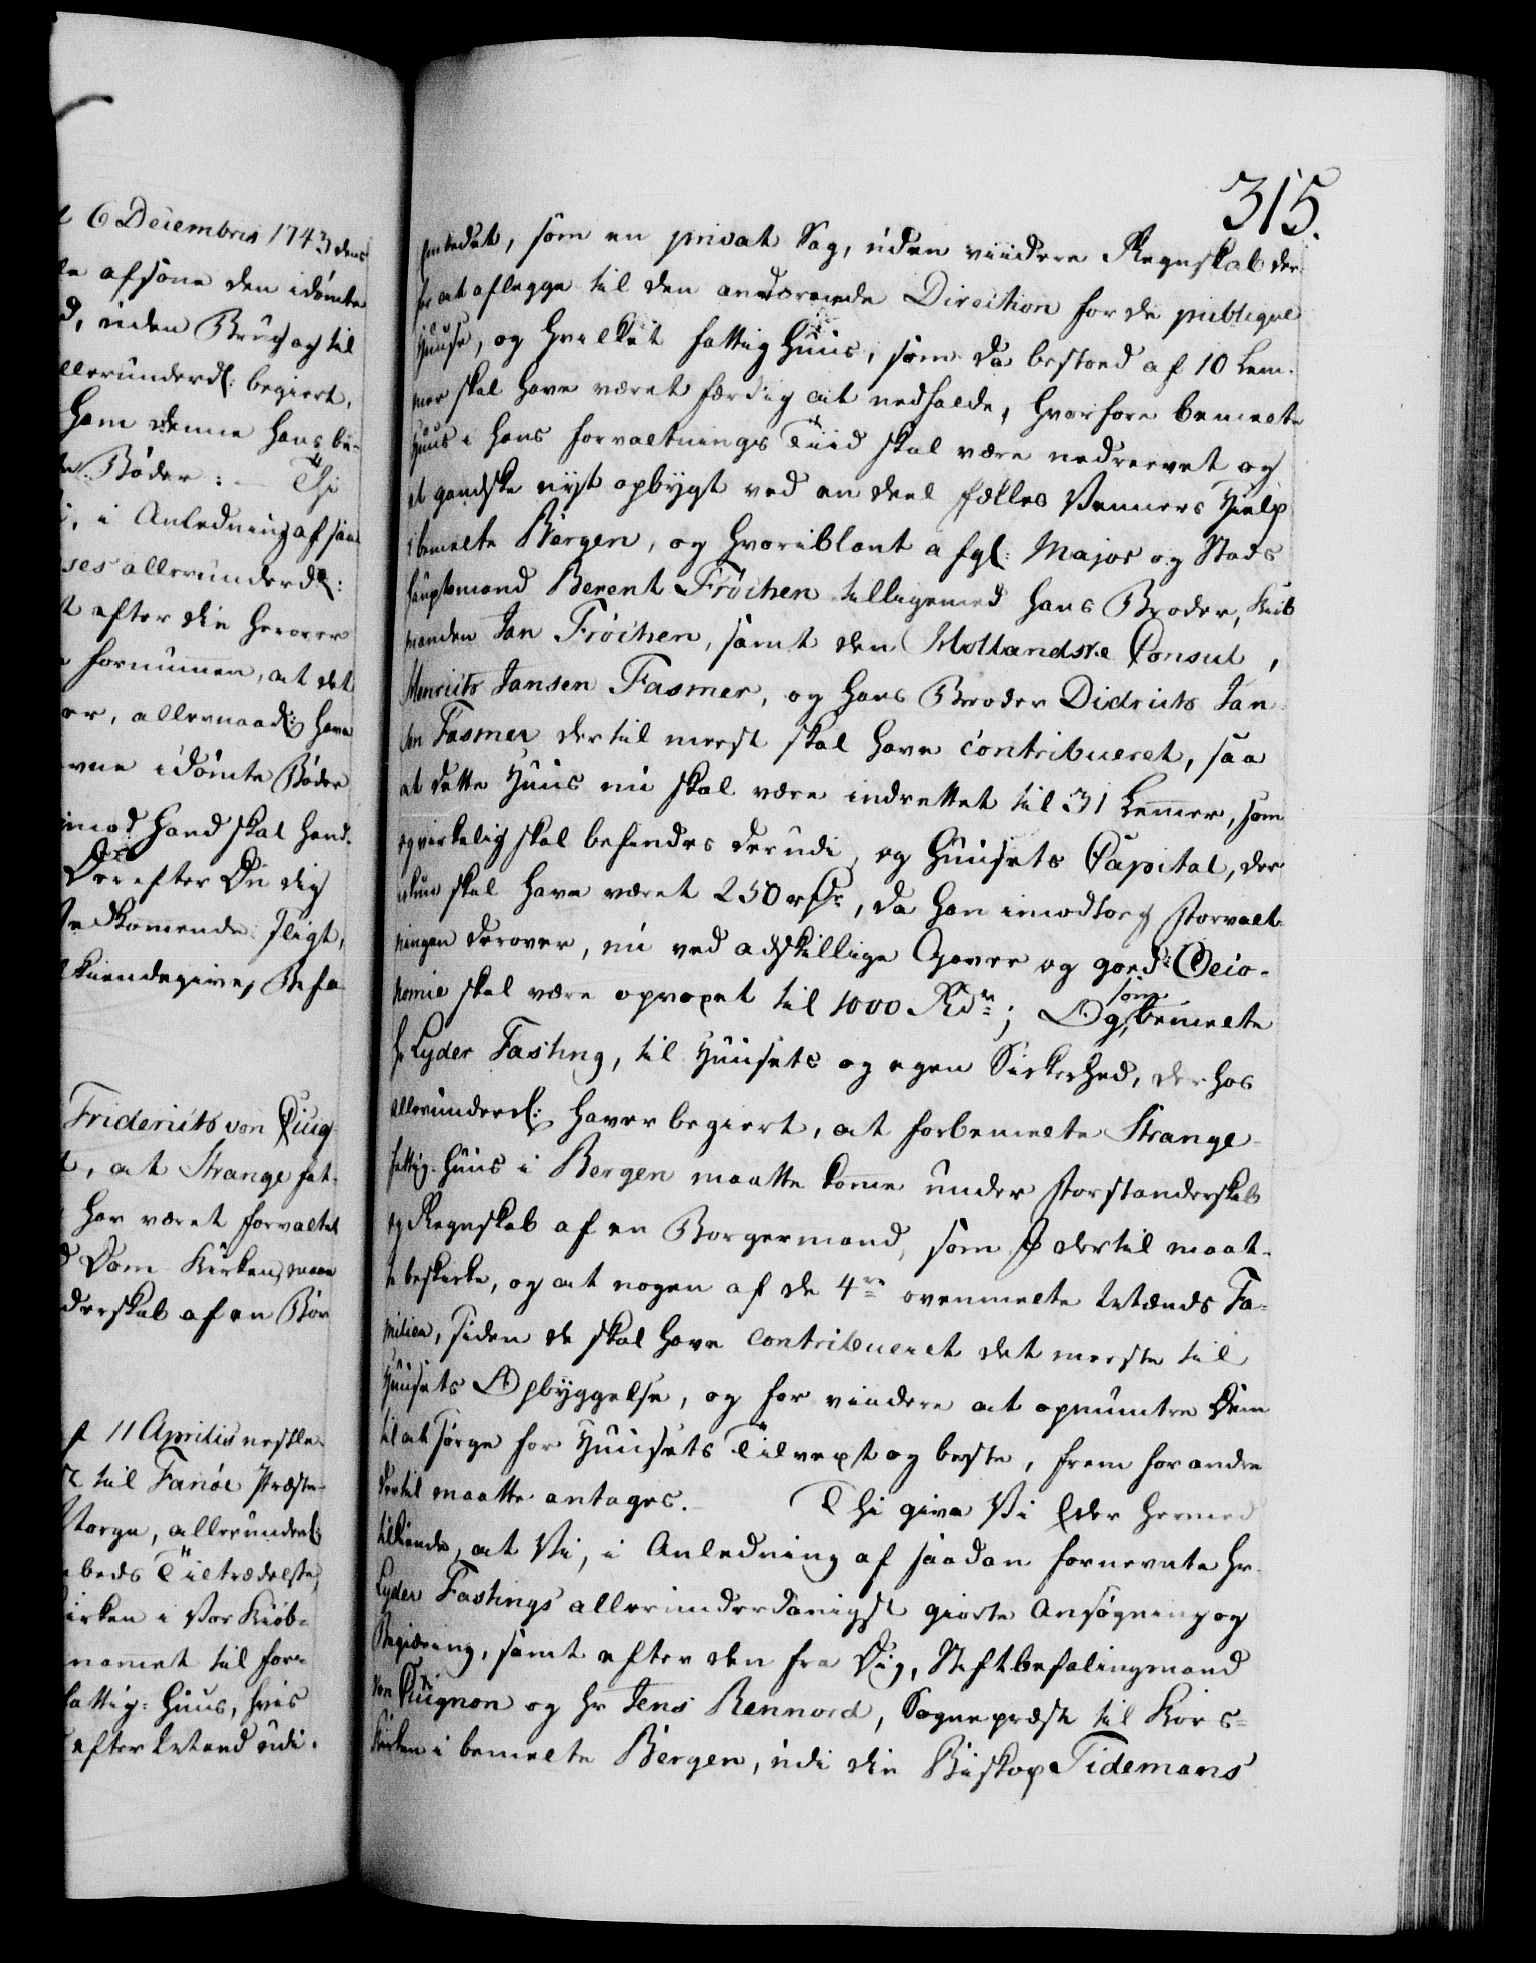 t 6 Decembris 1743 dens
le afsone den idømte
d, uden Brug og til
allerunderd: begiert,
ham denne hans be-
te Bøder: — Thi
i, i Anledning af saa
ses allerunderd:
t efter din herover
fornummen, at det
er, allernaad: have
evne idømte Bøder
imod hand skal hand-
Derefter Du dig
Vedkommende sligt,
l kiendegive, Befa
Friderichs von Cuig
t, at Strange fat-
har været forvaltet
d Dom Kirken, maa
derskab af en Bor
f 11 Aprilis nestle-
r til Fanøe Præste-
Norge, allerunderd:
ebeds Tiltrædelse,
irken i Vor Kiøb-
nammet til for-
fattig-Huus, hvis
efter Ætand udi.
315.
Embedet, som en privat Sag, uden viidere Regnskab der-
for at aflegge til den anordnede Direction for de publique
Huuse, og hvilket fattig Huus, som da bestoed af 10 Lem-
mer skal have været færdig at nedfalde, hvorfore bemelte
Huus i hans forvaltnings Tiid skal være nedrevet og
et gandske nyt opbygt ved en deel fælles Venners Hielp
i bemelte Bergen, og hvoriblant afgl: Major og Stads
hauptmand Berent Frøchen tilligemed hans Broder, Kiøb
manden Jan Frøchen, samt den Hollandske Consul,
Henrich Jansen Fasmer, og hans Broder Didrich Jan-
sen Fasmer dertil meest skal have contribueret, saa
at dette Huus nu skal være indrettet til 31 Lemmer, som
og virkelig skal befindes derudi, og Huusets Capital, der
ickun skal have været 250 rdr, da han imodtog Forvalt-
ningen derover, nu ved adskillige Gaver og goed Oeco-
nomie skal være opvoxet til 1000 Rdr; Og som bemelte
Hr Lyder Fasting, til Huusets og egen Sickerhed, derhos
allerunderd: haver begiert, at forbemelte Strange-
fattig-Huus i Bergen maatte komme under Forstanderskab
og Regnskab af en Borgermand, som I dertil maat-
te beskicke, og at nogen af de 4re ovenmelte Mænds Fa-
milier, siden de skal have contribueret det meeste til
Huusets Opbyggelse, og for viidere at opmuntre Dem
til at sørge for Huusets Tilvext og beste, frem for andre
dertil maatte antages. — Thi give Vi Eder hermed
tilkiende, at Vi, i Anledning af saadan fornevnte Hr.
Lyder Fastings allerunderdanigst giorte Ansøgning og
Begiæring, samt efter den fra Dig, Stiftbefalingsmand
von Cuignon og Hr Jens Rennord, Sogneprest til Kors-
Kirken i bemelte Bergen, udi din Biskop Tidemans